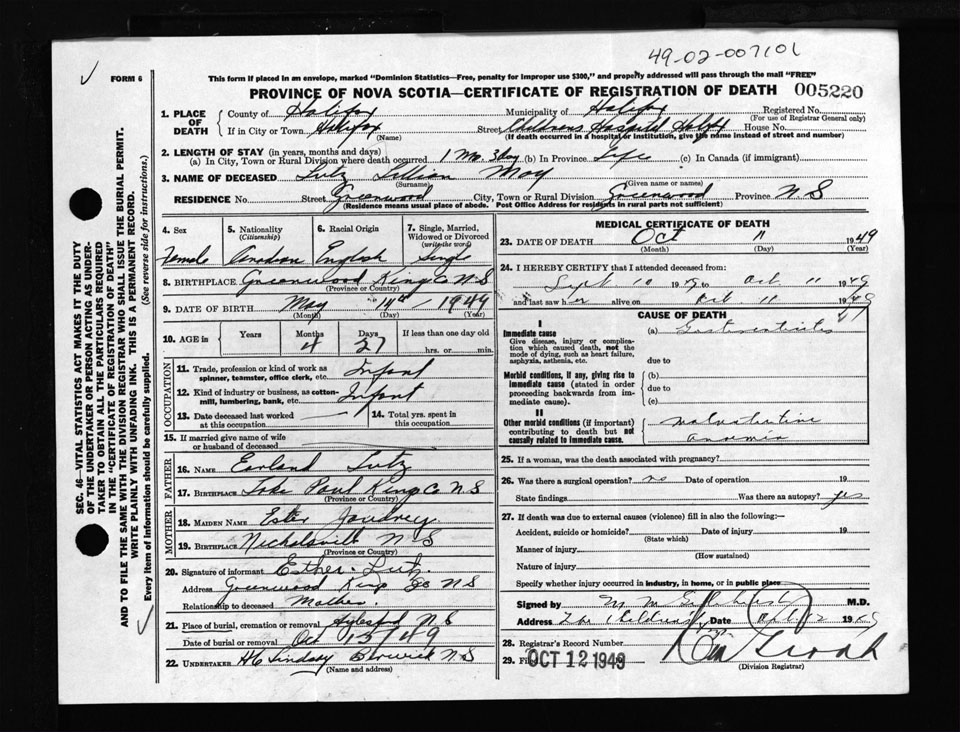 49-02-007101
FORM 6
This form if placed in an envelope, marked "Dominion Statistics—Free, penalty for improper use $300," and properly addressed will pass through the mail "FREE"
PROVINCE OF NOVA SCOTIA—CERTIFICATE OF REGISTRATION OF DEATH 005220
SEC. 46—VITAL STATISTICS ACT MAKES IT THE DUTY
OF THE UNDERTAKER OR PERSON ACTING AS UNDER-
TAKER TO OBTAIN ALL THE PARTICULARS REQUIRED
IN THE "CERTIFICATE OF REGISTRATION OF DEATH"
AND TO FILE THE SAME WITH THE DIVISION REGISTRAR WHO SHALL ISSUE THE BURIAL PERMIT.
WRITE PLAINLY WITH UNFADING INK. THIS IS A PERMANENT RECORD.
Every item of information should be carefully supplied. (See reverse side for instructions.)
1. PLACE OF DEATH
County of Halifax Municipality of Halifax Registered No.
(For use of Registrar General only)
If in City or Town Halifax Street Childrens Hospital Halifax House No.
(Name) (If death occurred in a hospital or institution, give the name instead of street and number)
2. LENGTH OF STAY (in years, months and days)
(a) In City, Town or Rural Division where death occurred 1 Mo. 3 day (b) In Province Life (c) In Canada (if immigrant)
3. NAME OF DECEASED Lutz Lillian May
(Surname) (Given name or names)
RESIDENCE No. Street Greenwood City, Town or Rural Division Greenwood Province N S
(Residence means usual place of abode. Post Office Address for residents in rural parts not sufficient)
4. Sex
Female
5. Nationality (Citizenship)
Canadian
6. Racial Origin
English
7. Single, Married, Widowed or Divorced (write the word)
Single
8. BIRTHPLACE Greenwood Kings Co N S
(Province or Country)
9. DATE OF BIRTH May 14th 1949
(Month) (Day) (Year)
10. AGE in Years Months Days If less than one day old
4 27 hrs. or min.
OCCUPATION
11. Trade, profession or kind of work as spinner, teamster, office clerk, etc. Infant
12. Kind of industry or business, as cotton-mill, lumbering, bank, etc. Infant
13. Date deceased last worked at this occupation
14. Total yrs. spent in this occupation
15. If married give name of wife or husband of deceased
FATHER
16. NAME Earland Lutz
17. BIRTHPLACE Paul Kings Co N S
(Province or Country)
MOTHER
18. MAIDEN NAME Ester Joudrey
19. BIRTHPLACE Nicholsville N S
(Province or Country)
20. Signature of informant Esther Lutz
Address Greenwood King Co N S
Relationship to deceased Mother.
21. Place of burial, cremation or removal Aylesford N S
Date of burial or removal Oct 13/49
22. UNDERTAKER H C Lindsay Berwick N S
(Name and address)
MEDICAL CERTIFICATE OF DEATH
23. DATE OF DEATH Oct 11 1949
(Month) (Day) (Year)
24. I HEREBY CERTIFY that I attended deceased from:
Sept 10 1949 to Oct 11 1949
and last saw her alive on Oct 11 1949
CAUSE OF DEATH
I
Immediate cause
Give disease, injury or complica-
tion which caused death, not the
mode of dying, such as heart failure,
asphyxia, asthenia, etc.
(a) Gastroenteritis
due to
Morbid conditions, if any, giving rise to
immediate cause (stated in order
proceeding backwards from im-
mediate cause).
(b)
due to
(c)
II
Other morbid conditions (if important)
contributing to death but not
causally related to immediate cause.
Malnutrition
anemia
25. If a woman, was the death associated with pregnancy?
26. Was there a surgical operation? no Date of operation 19
State findings Was there an autopsy? yes
27. If death was due to external causes (violence) fill in also the following:—
Accident, suicide or homicide? Date of injury 19
(State which)
Manner of injury
(How sustained)
Nature of injury
Specify whether injury occurred in industry, in home, or in public place
Signed by M. M. M.D.
Address The Children's Date Oct 12 1949
28. Registrar's Record Number
29. Filed OCT 12 1949
(Division Registrar)